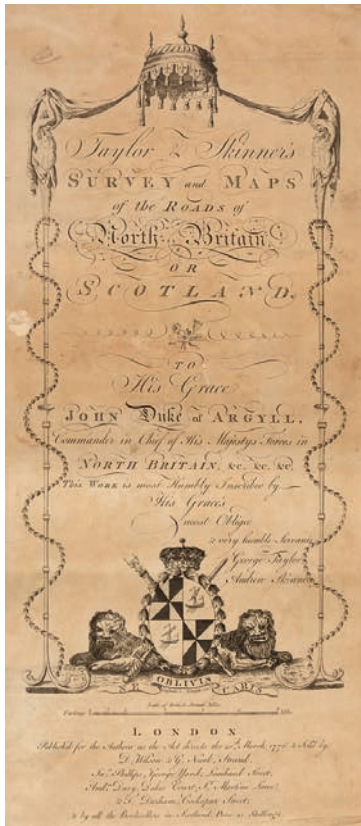 Taylor & Skinner's
SURVEY and MAPS
of the ROADS of
North Britain
OR
SCOTLAND.
TO
His Grace
JOHN Duke of ARGYLL,
Commander in Chief of His Majestys Forces in
NORTH BRITAIN, &c. &c. &c.
This WORK is most Humbly Inscribed by
His Graces
most Oblig'd
& very humble Servants
George Taylor
Andrew Skinner
NE OBLIVIS CARIS
Scale of British Statute Miles
Furlongs Miles
LONDON
Published for the Authors as the Act directs the 20th March, 1776. & Sold by
D. Wilson & G. Nicol, Strand.
Phillips, George Yard, Lombard Street,
Dury, Dukes Court, St. Martins Lane,
Cockspur Street;
& by all the Booksellers in Scotland, Price Shillings.